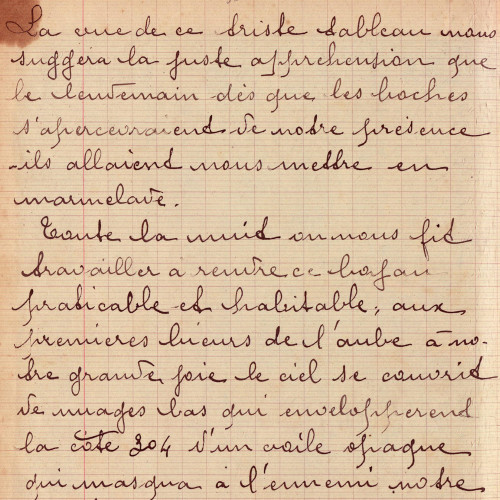 La vue de ce triste tableau nous
suggéra la juste appréhension que
le lendemain dès que les boches
s'apercevraient de notre présence
ils allaient nous mettre en
marmelade.
Toute la nuit on nous fit
travailler à rendre ce boyau
praticable et habitable, aux
premières lueurs de l'aube à no-
tre grande joie le ciel se couvrit
de nuages bas qui enveloppèrent
la côte 304 d'un voile opaque
qui masqua à l'ennemi notre